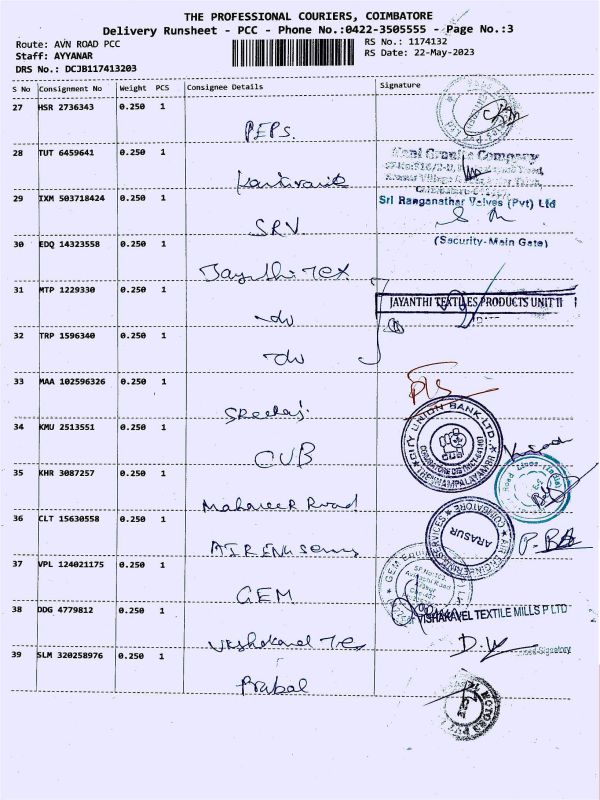 THE PROFESSIONAL COURIERS, COIMBATORE
Delivery Runsheet - PCC - Phone No.:0422-3505555 - Page No.:3
Route: AVN ROAD PCC
RS No.: 1174132
Staff: AYYANAR
RS Date: 22-May-2023
DRS No.: DCJB117413203
S No Consignment No Weight PCS Consignee Details Signature
27 HSR 2736343 0.250 1
PEPS.
28 TUT 6459641 0.250 1
Mani Granite Company
29 IXM 503718424 0.250 1
Sri Ranganathar Valves (Pvt) Ltd
SRV
30 EDQ 14323558 0.250 1
(Security-Main Gate)
Jayanthi Tex
31 MTP 1229330 0.250 1
JAYANTHI TEXTILES PRODUCTS UNIT II
do
32 TRP 1596340 0.250 1
do
33 MAA 102596326 0.250 1
34 KMU 2513551 0.250 1
CITY UNION BANK LTD.
CUB
CUB
35 KHR 3087257 0.250 1
Mahaveer Road
36 CLT 15630558 0.250 1
AIR ENGINEERING SERVICES
COIMBATORE
ARASUR
AIR ENG
37 VPL 124021175 0.250 1
GEM
GEM
38 DDG 4779812 0.250 1
VISHAKAVEL TEXTILE MILLS P LTD
Vishakavel Tex
39 SLM 320258976 0.250 1
Prabal